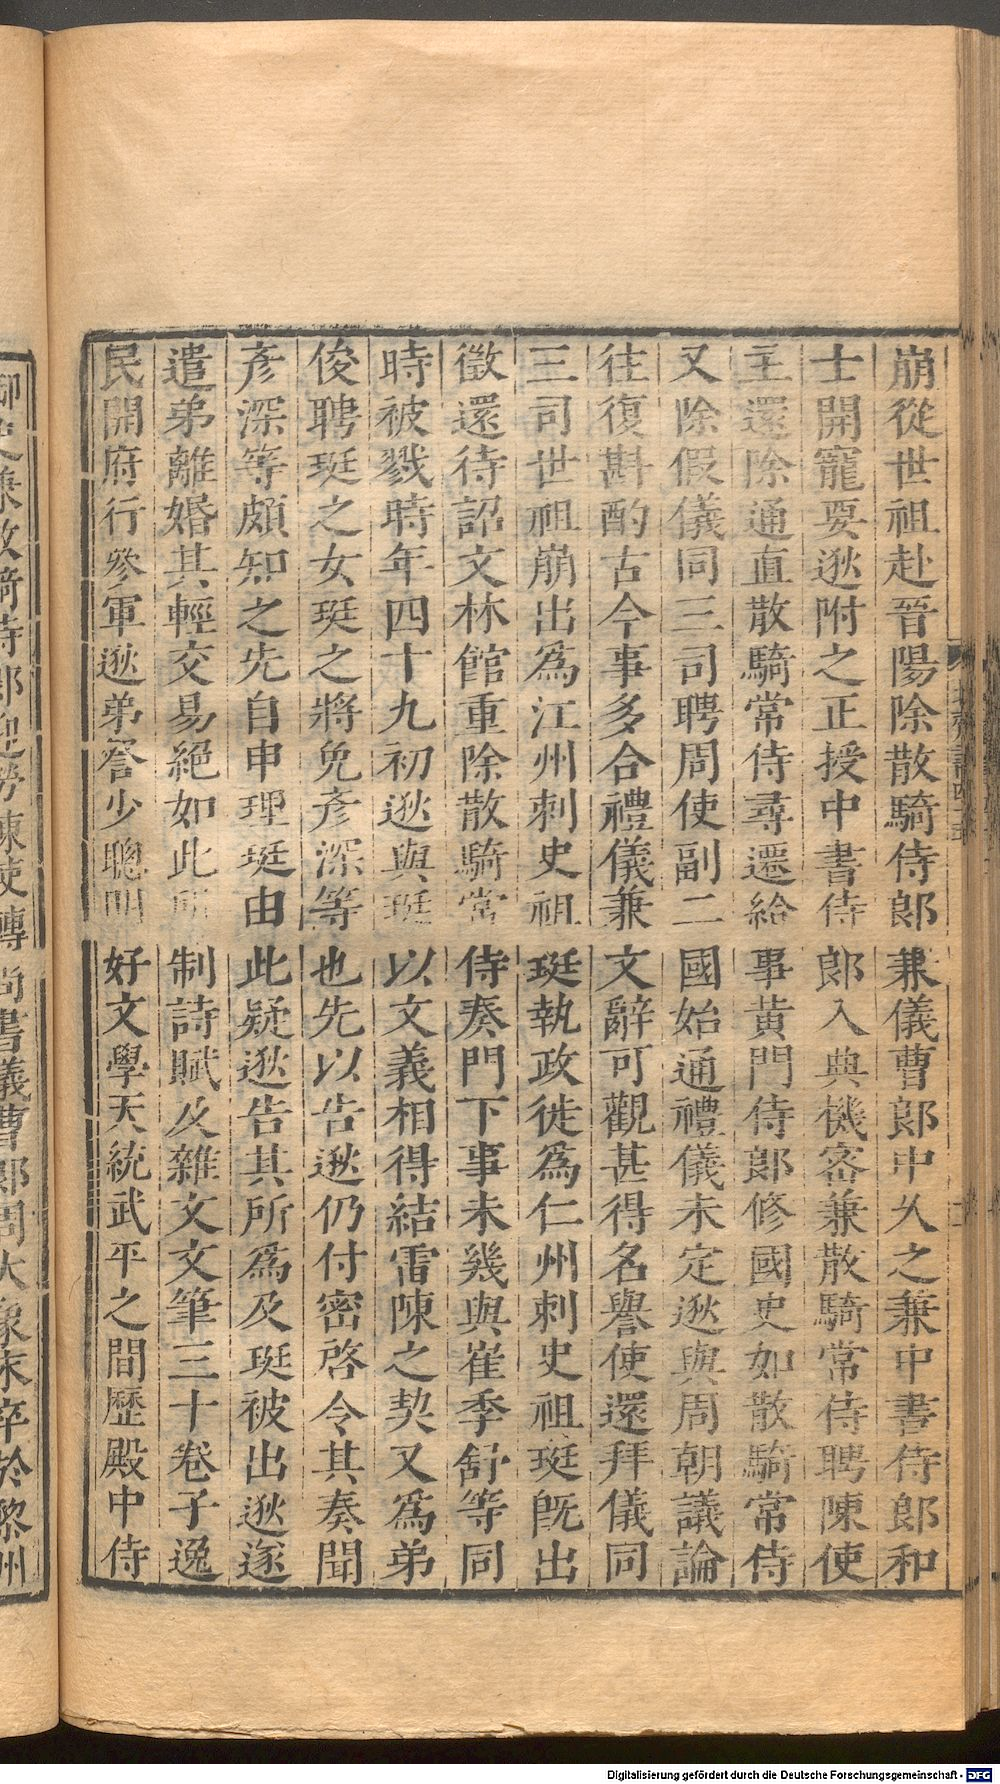 崩從世祖赴晉陽除散騎侍郎兼儀曹郎中久之兼中書侍郎和
士開寵要逖附之正授中書侍郎入典機密兼散騎常侍聘陳使
主還除通直散騎常侍尋遷給事黃門侍郎修國史如散騎常侍
又除假儀同三司聘周使副二國始通禮儀未定逖與周朝議論
往復斟酌古今事多合禮儀兼文辭可觀甚得名譽使還拜儀同
三司世祖崩出為江州刺史祖珽執政徙為仁州刺史祖珽既出
徵還待詔文林館重除散騎常侍奏門下事未幾與崔季舒等同
時被戮時年四十九初逖與珽以文義相得結雷陳之契又為弟
俊聘珽之女珽之將免彥深等也先以告逖仍付密啓令其奏聞
彥深等頗知之先自申理珽由此疑逖告其所為及珽被出逖遂
遣弟離婚其輕交易絕如此所制詩賦及雜文文筆三十卷子逸
民開府行參軍逖弟詧少聰明好文學天統武平之間歷殿中侍
御史兼散騎侍郎迎勞陳使轉尚書儀曹郎周大象末卒於黎州
Digitalisierung gefördert durch die Deutsche Forschungsgemeinschaft - DFG